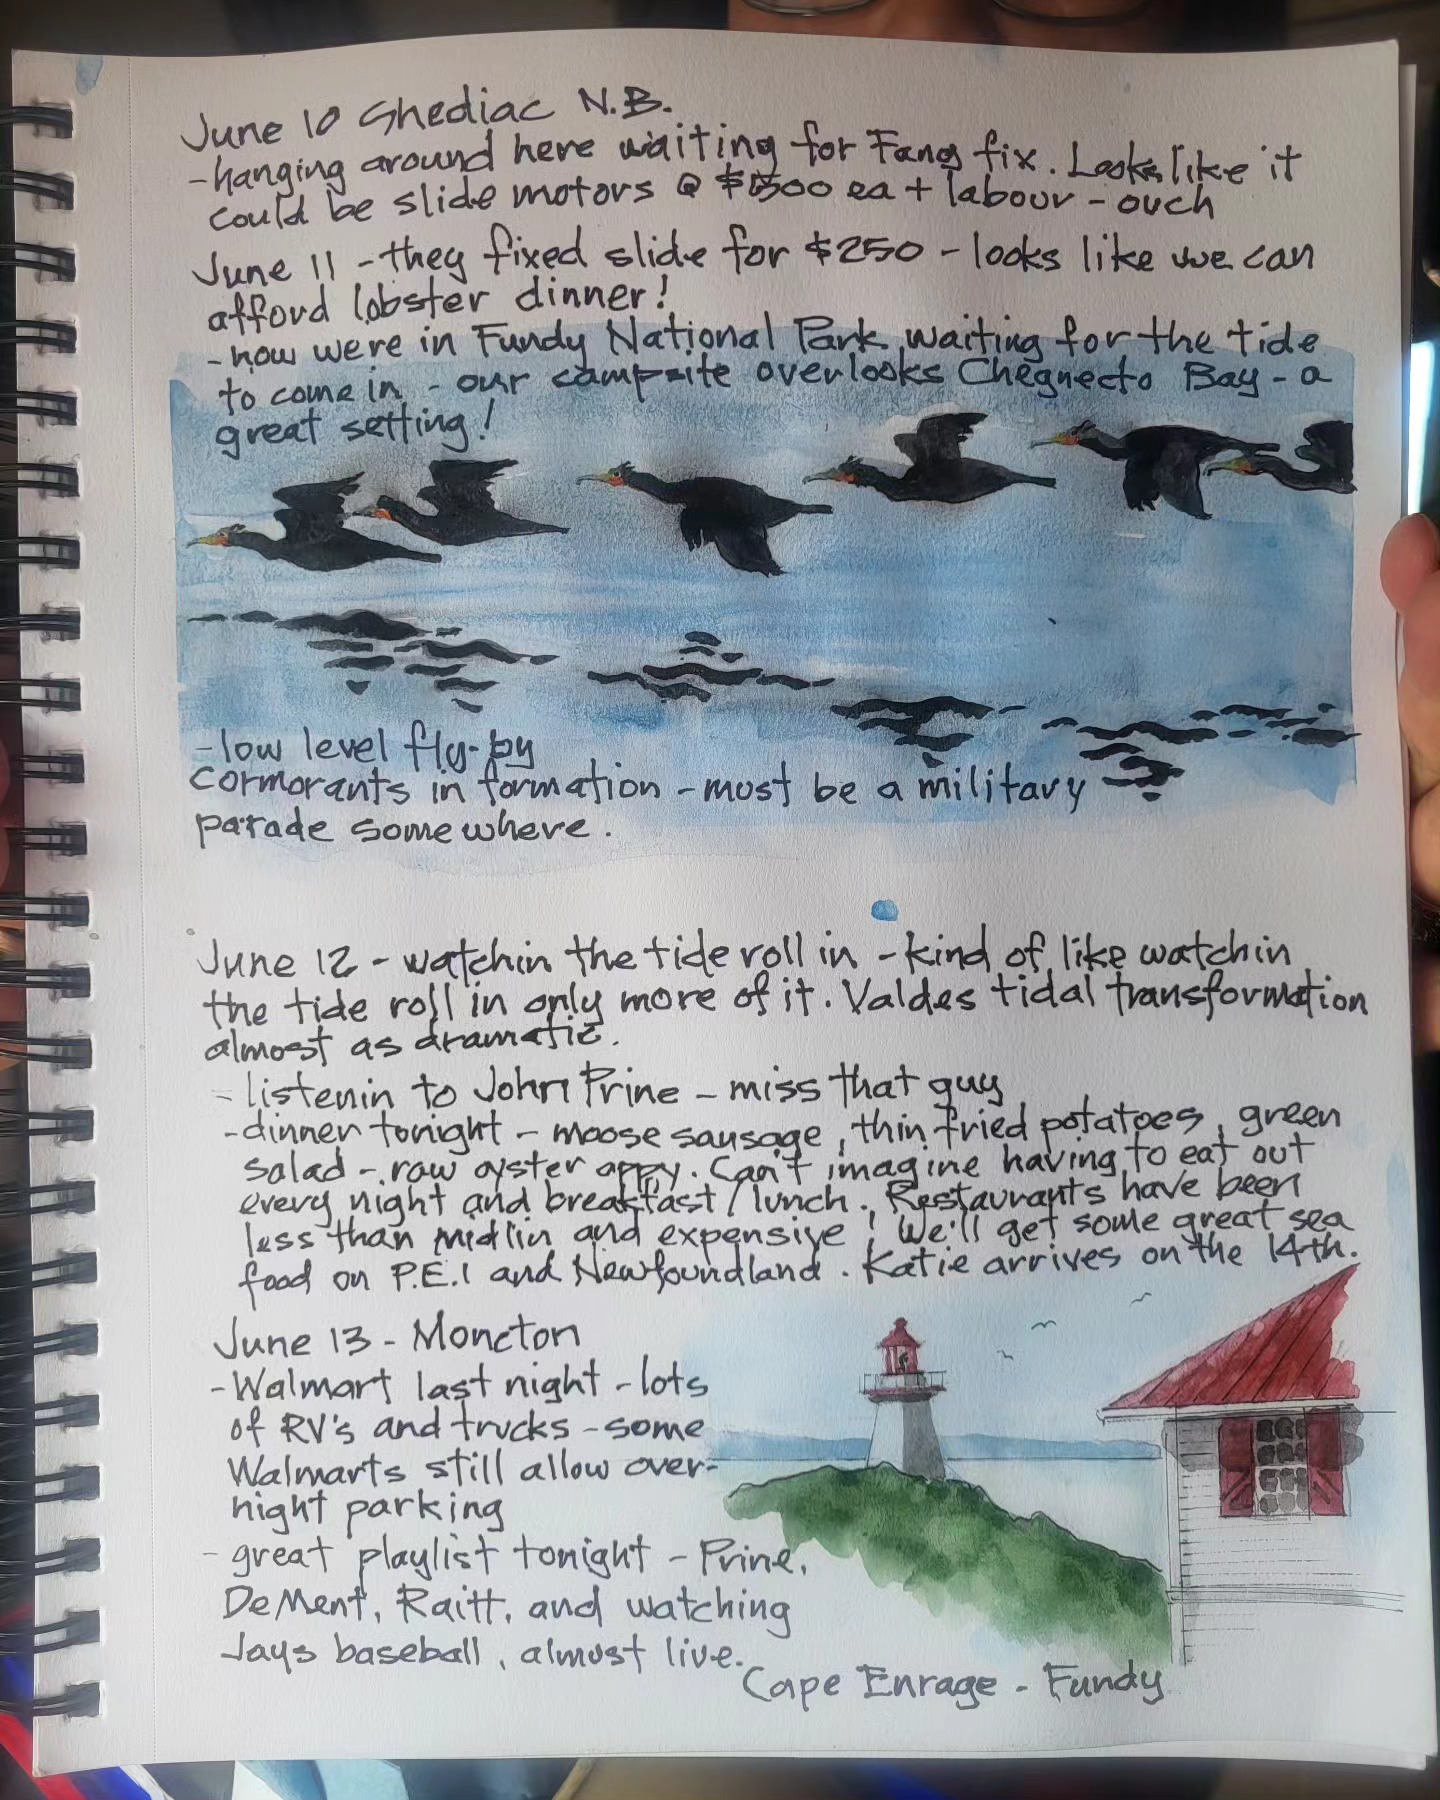 June 10 Shediac N.B.
- hanging around here waiting for Fang fix. Looks like it
could be slide motors @ $1500 ea + labour - ouch
June 11 - they fixed slide for $250 - looks like we can
afford lobster dinner!
- now were in Fundy National Park waiting for the tide
to come in - our campsite overlooks Chegnecto Bay - a
great setting!
- low level fly-by
cormorants in formation - must be a military
parade somewhere.
June 12 - watchin the tide roll in - kind of like watchin
the tide roll in only more of it. Valdes tidal transformation
almost as dramatic.
- listenin to John Prine - miss that guy
- dinner tonight - moose sausage, thin fried potatoes, green
salad - raw oyster appy. Can't imagine having to eat out
every night and breakfast / lunch. Restaurants have been
less than midlin and expensive! We'll get some great sea
food on P.E.I and Newfoundland. Katie arrives on the 14th.
June 13 - Moncton
- Walmart last night - lots
of RV's and trucks - some
Walmarts still allow over-
night parking
- great playlist tonight - Prine,
DeMent, Raitt, and watching
Jays baseball, almost live.
Cape Enrage - Fundy